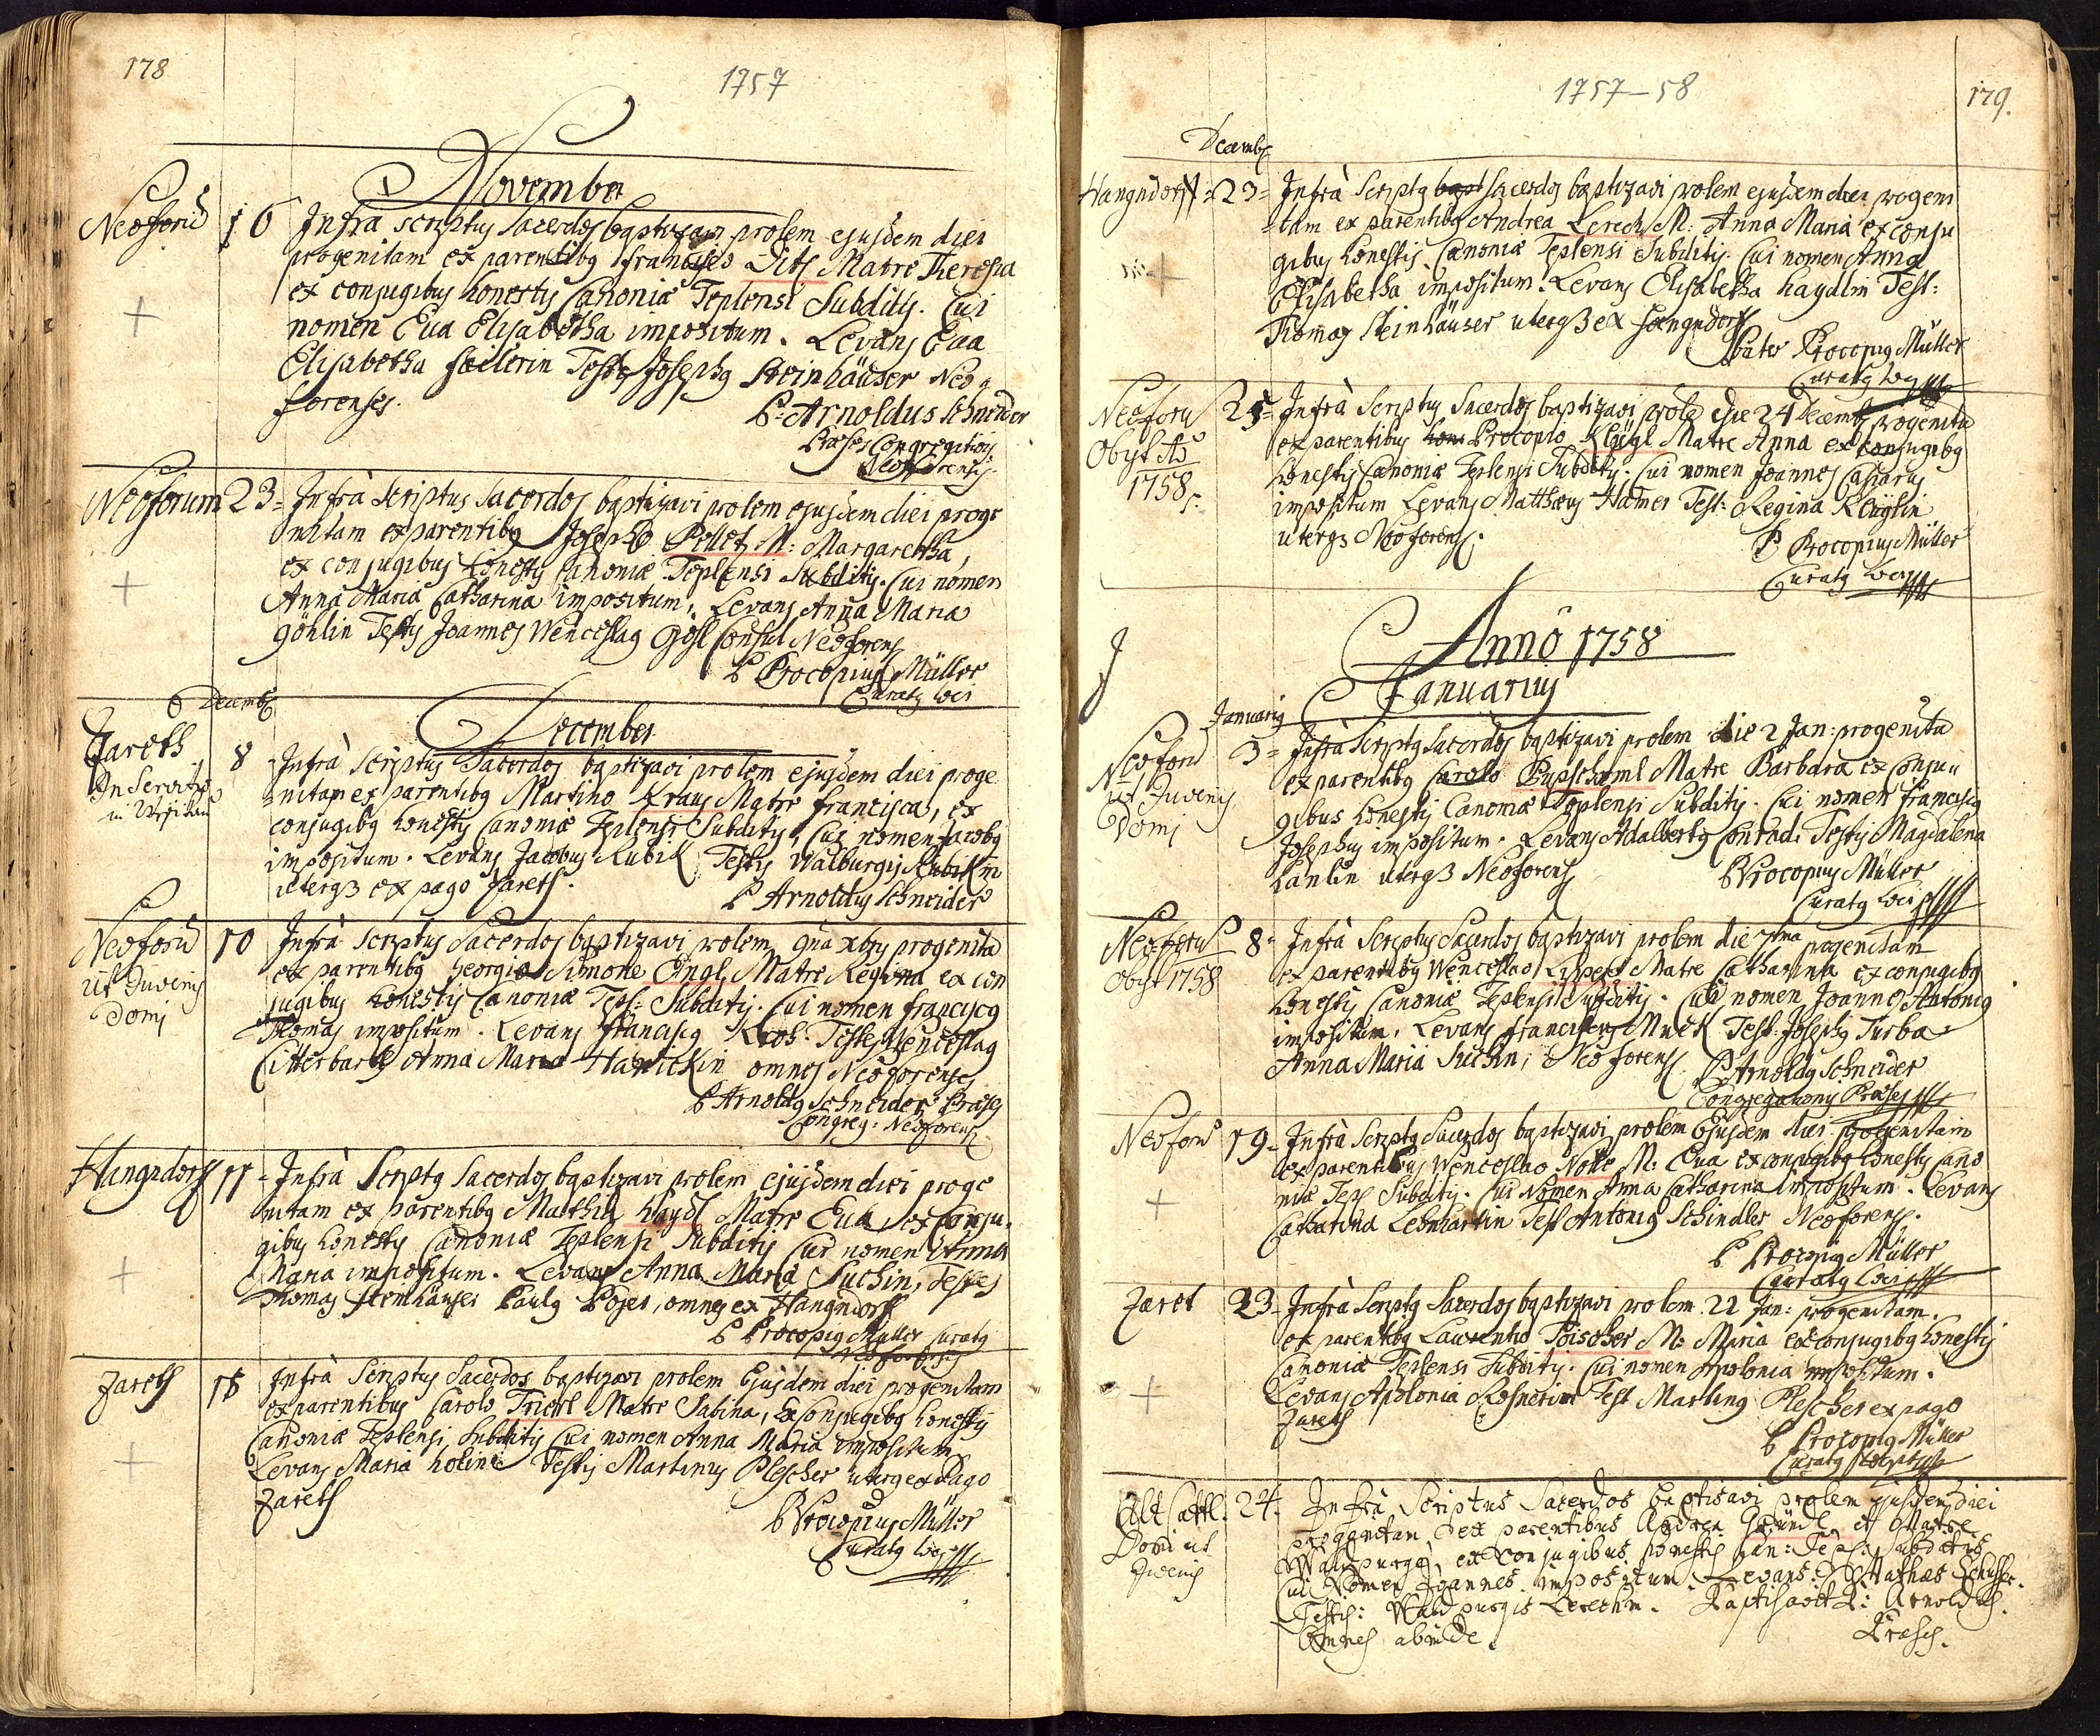 178
1757
November
Neoforū 16 Infra scriptus Sacerdos baptizavi prolem ejusdem diei
progenitam ex parentibq francisco Ditl Matre Theresia
ex conjugibus honestis Canoniæ Teplensi Subditis. Cui
nomen Eva Elisabetha impositum. Levans Eva
Elisabetha Testis Josephq Steinhäuser Neo
forenses.
P. Arnoldus Schneider
Præses Congregationis
Neoforensis
Neoforum 23 Infrà scriptus Sacerdos baptizavi prolem ejusdem diei proge
nitam ex parentibq Josepho Pellet M: Margaretha,
ex conjugibus honestis Canoniæ Teplensi Subditis. Cui nomen
Anna Maria Catharina impositum, Levans Anna Maria
Göhlin Testis Joannes Wenceslaq Gösl Consul Neoforens
P Procopius Müller
Curatq loci
Decemb
December
Zareth 8 Infrà scriptus Sacerdos baptizavi prolem ejusdem diei proge
In Servitio
nitam ex parentibq Martino Kraus Matre francisca, ex
conjugibq honestis Canoniæ Teplensi Subditis, Cui nomen Jacobq
impositum. Levans Jacobus Kubik Testis Walburgis Kubikin
uterq3 ex pago Zareth.
P Arnoldus Schneider
Neoforū 10 Infrà scriptus Sacerdos baptizavi prolem 9na xbris progenita
ut Juvenis
domi
ex parentibq Georgio Simone Engl Matre Regina ex con
jugibus honestis Canoniæ Tepl: Subditis. Cui nomen franciscq
Thomas impositum. Levans franciscq Kroh. Testes Wenceslaq
Citterbart Anna Maria Hanickin omnes Neoforenses
P Arnoldq Schneider Præses
Congreg: Neoforens
Hangndorff 11 Infrà Scriptq Sacerdos baptizavi prolem ejusdem diei proge
nitam ex parentibq Mathia Haydl Matre Eva ex Conju
gibus honestis Canoniæ Teplensi Subditis Cui nomen Anna
Maria impositum. Levans Anna Maria Suchin, Testes
Thomas Steinhäuser Paulq Poser, omnes ex Hangndorff
P Procopiq Müller Curatq
Neoforensis
Zareth 18 Infrà Scriptus Sacerdos baptizavi prolem Ejusdem diei progenitam
ex parentibus Carolo Trictl Matre Sabina, Ex Conjugibq honestis
Canoniæ Teplensi Subditis Cui nomen Anna Maria impositum
Levans Maria Testis Martinus Plescher uterq ex Pago
Zareth
P Procopius Müller
Curatq loci
1757–58
179.
Decemb
Hangndorff 23 Infrà Scriptq bapt Sacerdos baptizavi prolem ejusdem diei progeni
tam ex parentibq Andrea Lerech M: Anna Maria ex conju
gibus honestis Canoniæ Teplensi Subditis. Cui nomen Anna
Elisabetha impositum. Levans Elisabetha haydlin Test:
Thomas Steinhäuser uterq3 ex Hangndorff
Pater Procopiq Müller
Curatq loci
Neoforū 25 Infrà Scriptus Sacerdos baptizavi prole die 24 Decemb progenita
Obyt Aō
1758
ex parentibus hone Procopio Kleügl Matre Anna ex conjugibq
honestis Canoniæ Teplensi Subditis. Cui nomen Joannes Casparus
impositum Levans Matthæus Hamer Test: Regina Kleüglin
uterq3 Neoforens.
P Procopius Müller
Curatq loci
Annô 1758
Januarius
Januariq
Neoforū 3 Infrà Scriptq Sacerdos baptizavi prolem die 2 Jan: progenita
ut Juvenis
Domi
ex parentibq Carolo Matre Barbara ex Conju
gibus honestis Canoniæ Teplensi Subditis. Cui nomen franciscq
Josephus impositum. Levans Adalbertq Conrad. Testis Magdalena
Hanlin uterq3 Neoforens
P Procopius Müller
Curatq loci
Neoforū 8 Infrà Scriptus Sacerdos baptizavi prolem die 7tma progenitam
Obyt 1758
ex parentibq Wenceslao Lippert Matre Catharina ex conjugibq
honestis Canoniæ Teplensis Subditis. Cui nomen Joannes Antoniq
impositum. Levans franciscus Muck Test: Josephq Turba
Anna Maria Suchin, Neoforens.
P Arnoldq Schneider
Congregationis Præses
Neoforū 19 Infrà Scriptq Sacerdos baptizavi prolem Ejusdem diei progenitam
ex parentibus Wenceslao Nolle M: Eva ex conjugibq honestis Cano
niæ Tepl Subditis. Cui Nomen Anna Catharina impositum. Levans
Catharina Lehnhartin Test Antoniq Schindler Neoforens.
P Procopiq Müller
Curatq loci
Zaret 23 Infrà Scriptq Sacerdos baptizavi prolem 22 Jan: progenitam.
ex parentibq Laurentio Töischer M: Maria ex conjugibq honestis
Canoniæ Teplensi Subditis. Cui nomen Apolonia impositum.
Levans Apolonia Test Martinq Plescher ex pago
Zareth
P Procopiq Müller
Curatq loci
Alt Sattl. 24. Infrà Scriptus Sacerdos baptisavi prolem ejusdem diei
Domi ut
Juvenis
proggnitam ex parentibus Andrea Gründl et Matre
Waldpurga, ex conjugibus honestis Can: Tepl: Subditis
Cui Nomen Joannes impositum Levans: Mathæs Schusser.
Testis: Waldpurgis Lerechin. Baptisavit P: Arnoldus
Omnes abinde.
Præses.